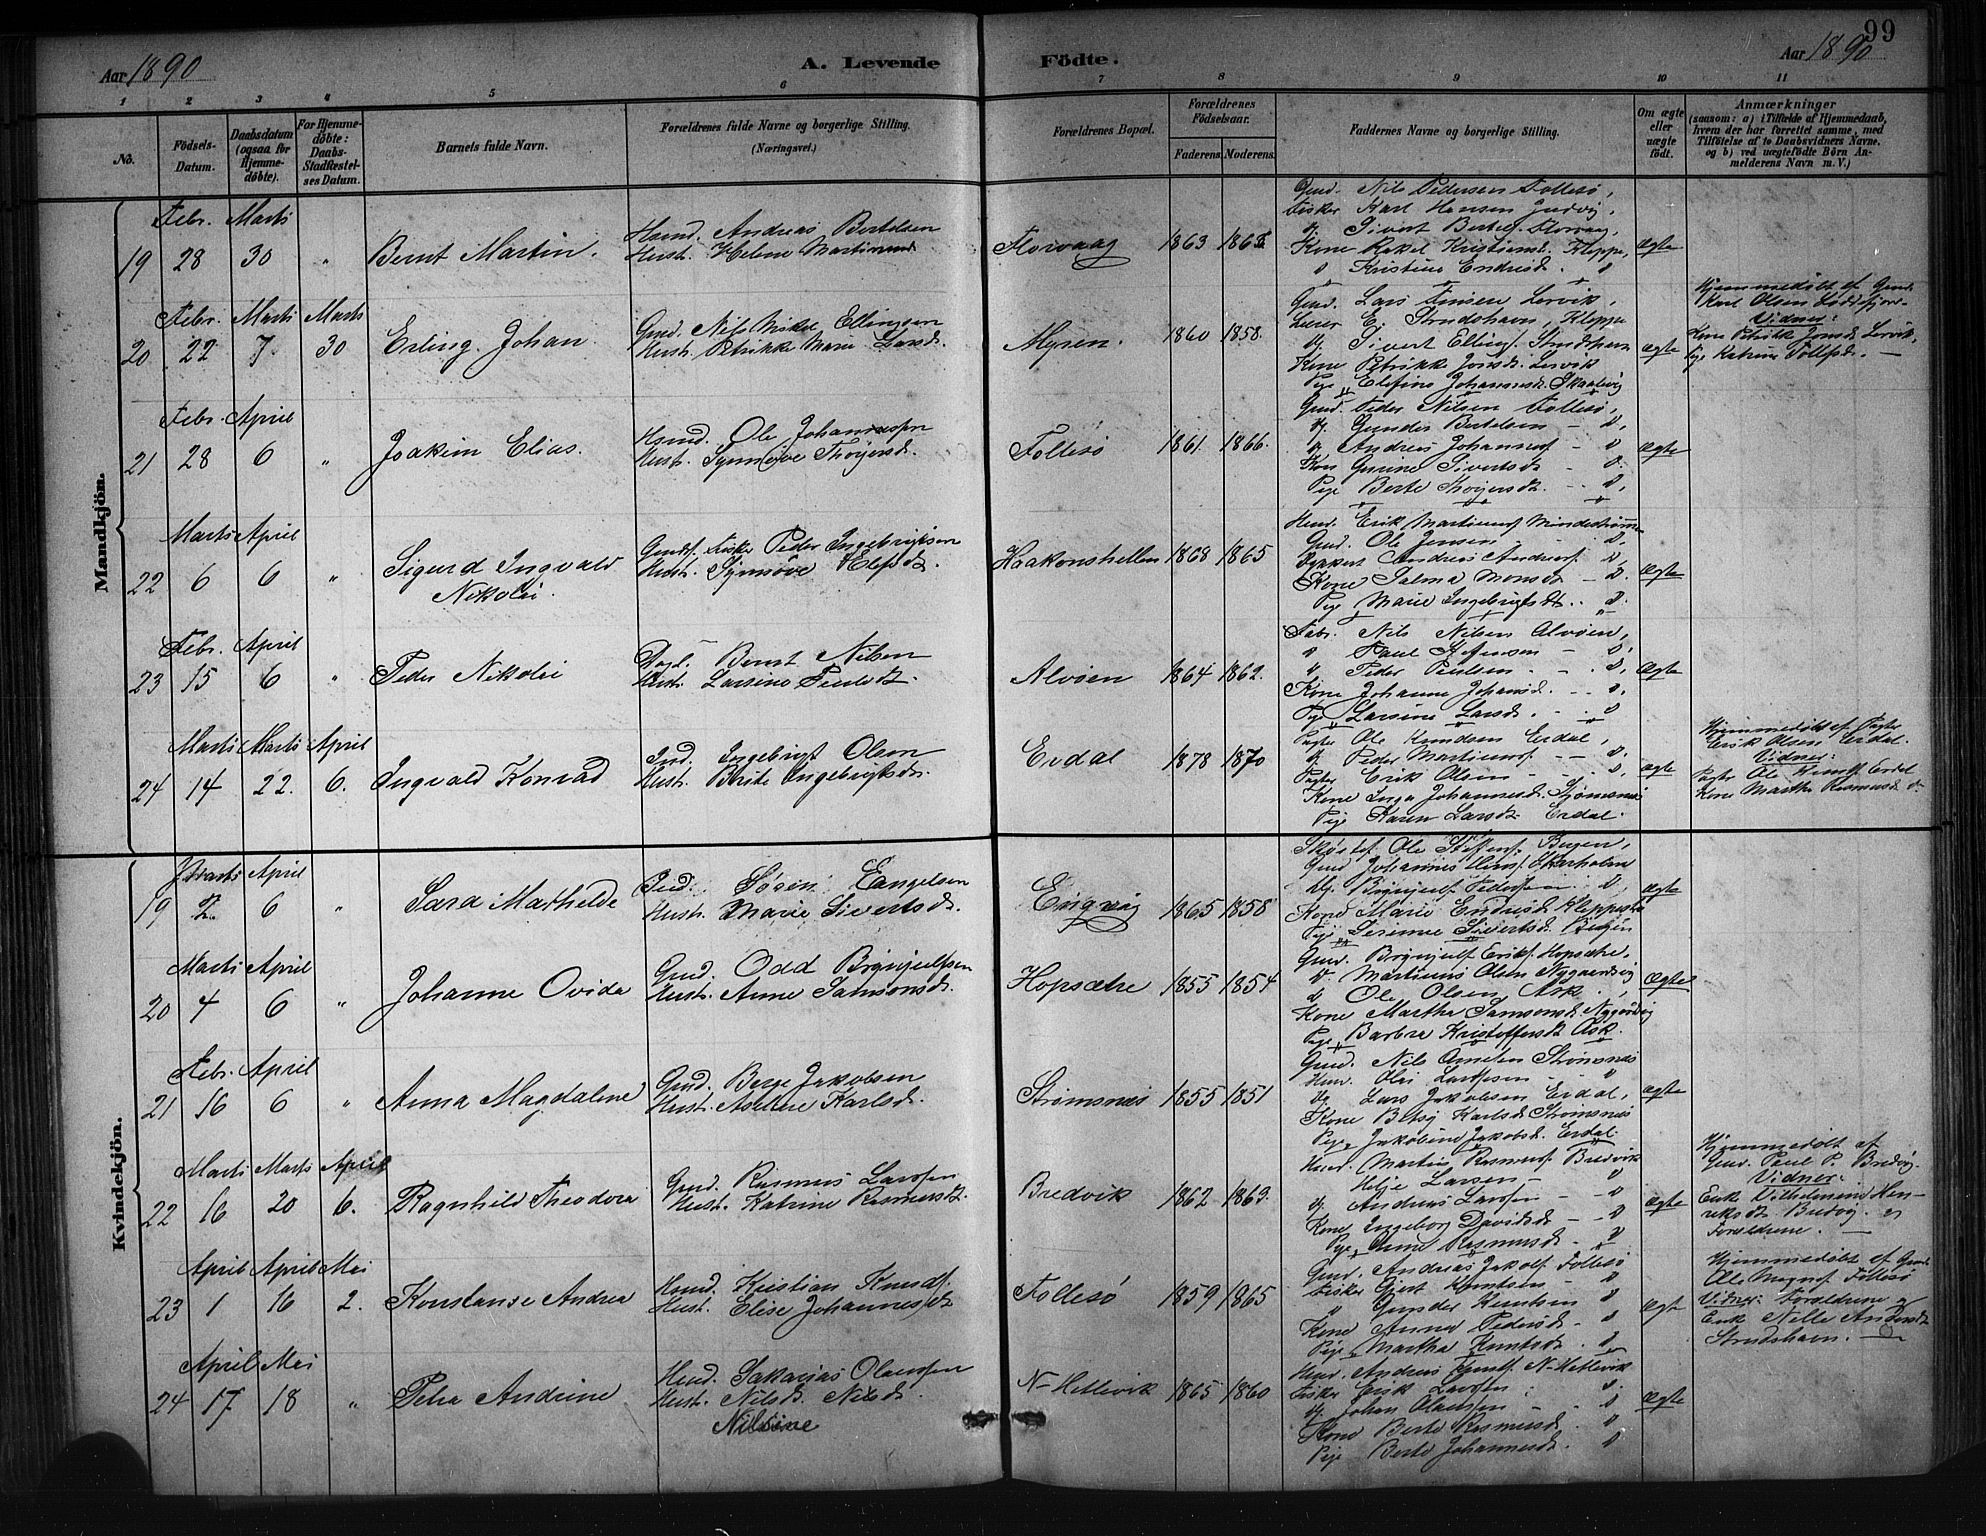 99
Aar 1890
A. Levende
Födte.
Aar 1890
1 2 3 4 5 6 7 8 9 10 11
No.
Födsels-Datum.
Daabsdatum (ogsaa for Hjemme-döbte).
For Hjemme-döbte: Daabs-Stadfæstel-ses Datum.
Barnets fulde Navn.
Forældrenes fulde Navne og borgerlige Stilling.
(Næringsvei.)
Forældrenes Bopæl.
Forældrenes Födselsaar.
Faderens. Moderens.
Faddernes Navne og borgerlige Stilling.
Om ægte eller uægte födt.
Anmærkninger
(saasom: a) i Tilfælde af Hjemmedaab, hvem der har forrettet samme, med Tilföielse af to Daabsvidners Navne, og b) ved uægtefödte Börn An-melderens Navn m. V.)
Mandkjön.
19 Febr. 28 Marts 30 "
Bernt Martin.
Husmd. Andreas Bertelsen
Hust. Helene Martinusd
Florvaag 1863 1865
Gmd. Nils Pedersen Follesø,
Fisker Karl Hansen
Sivert Bertels. Florvaag,
Kone Rakel Kristiansd. Kleppe,
" Kristine Endresd. "
Ægte
20 Febr. 22 Marts 7 Marts 30
Erling Johan.
Gmd. Nils Mikal Ellingsen
Hust. Petrikke Marie Larsd.
Myren. 1860 1858.
Gmd. Lars Lervik,
Lærer E. Strudshavn, Kleppe
Sivert Ellings. Strudshavn
Kone Petrikke Jonsd. Lervik
Pige Elefine Johannesd. Skaalevig
ægte
Hjemmedøbt af Gmd.
Karl Olsen
Vidner:
Kone Petrikke Jonsd. Lervik,
Pige Katrine Tollefsd. —
21 Febr. 28 April 6 "
Joakim Elias.
Husmd. Ole Johannesen
Hust. Synnøve Thorgersd.
Follesø 1861. 1866.
Gmd. Peder Nilsen Follesø,
Gunder Bertelsen — "
Andreas Johanness. — "
Kone Gurine Sivertsd. — "
Pige Berte Thorgersd. — "
Ægte
22 Marts 6 April 6 "
Sigurd Ingvald
Nikolai.
Gmdf. Fisker Peder Ingebrigtsen
Hust. Synnøve Elefsd.
Haakonshellen 1868 1865
Husmd. Erik Martinus. Mindestrømmen
Gmd. Ole Jensen — "
Andreas Anders. "
Kone Salma Monsd. — "
Pige Marie Ingebrigtsd. — "
Ægte
23 Febr. 15 April 6 "
Peder Nikolai
Bernt Nilsen
Hust. Larsine Paulsd.
Alvøen 1864 1862.
Fabr. Nils Nilsen Alvøen,
" Paul — "
Peder Paulsen — "
Kone Johanne Johansd. — "
Pige Larsine Larsd. — "
Ægte
24 Marts 14 Marts 22. April 6.
Ingvald Konrad
Ind. Ingebrigt Olsen
Hust. Brite Ingebrigtsd.
Erdal 1878 1870
Pagter Ole Knudsen Erdal,
Peder Martinus. — "
Pagter Erik Olsen — "
Kone Inga Johannesd. Strømsnes
Pige Karen Larsd. Erdal.
ægte
Hjemmedøbt af Pagter
Erik Olsen Erdal.
Vidner:
Pagter Ole Knuds. Erdal
Kone Martha Rasmusd. "
Kvindekjön.
19 Marts April 6 "
Sara Mathelde
Ind. Søren Engelsen
Hust. Marie Sivertsd.
Engvig 1865 1858
Ole Steffens. Bugen,
Gmd Johannes
Brynjulf Pedersen "
Kone Marie Endresd Kleppestø
Pige Serine Sivertsd. Bugen
Ægte
20 Marts 4 April 6 "
Johanne Ovida
Gmd. Odd Brynjulfsen
Hust. Anne Samsonsd.
Hopsætre 1855 1854
Gmd. Brynjulf Eriks. Hopsætre,
" Martinus Olsen Nygaardsvig
" Ole Olsen Ask,
Kone Martha Samsonsd. Nygårdsvig
Pige Barbra Kristoffersd. Ask.
Ægte
21 Febr. 16 April 6 "
Anna Magdalene
Gmd. Berge Jakobsen
Hust. Aseline Karlsd.
Strømsnes 1855 1851
Gmd. Nils Strømsnes
Husm. Olai Larsen — "
Lars Jakobsen Erdal,
Kone Betsy Karlsd. Strømsnes
Pige Jakobine Jakobsd. Erdal
Ægte
22 Marts 16 Marts 20 April 6.
Ragnhild Theodora
Gmd. Rasmus Larsen
Hust. Katrine Rasmusd.
Bredvik 1862 1863.
Husmd. Martin Rasmus. Bredvik
Helje Larsen — "
Andreas Larsen — "
Kone Ingeborg Davidsd. — "
Pige Anne Rasmusd. — "
Ægte
Hjemmedøbt af
Gmd. Paul P. Bredvig.
Vidner:
Enk. Vilhelmine Hen-
riksd. Bredvig. og
Forældrene. —
23 April 1 April 16 Mai 2.
Konstanse Andrea
Husmd. Kristian Knuds.
Hust. Elise Johannesd
Follesø 1859 1865
Gmd. Andreas Jakobs. Follesø
Fisker Gjert Knutsen "
" Gunder Knutsen "
Kone Anna Pedersd. — "
Pige Martha Knutsd. — "
Ægte
Hjemmedøbt af Gmd.
Ole Magnus. Follesø
Vidner: Forældrene og
Enk. Nille Andersd
Strudshavn. —
24 April 17 Mai 18 "
Petra Andrine
Husmd. Sakarias Olaussen
Hust. Nilsd. Nilsd.
Nilsine
N-Hetlevik 1865 1860
Husmd. Andreas N-Hetlevik
Fisker Erik Larsen "
Johan Olausen — "
Kone Berte Rasmusd. "
Pige Berte Johannesd. "
Ægte